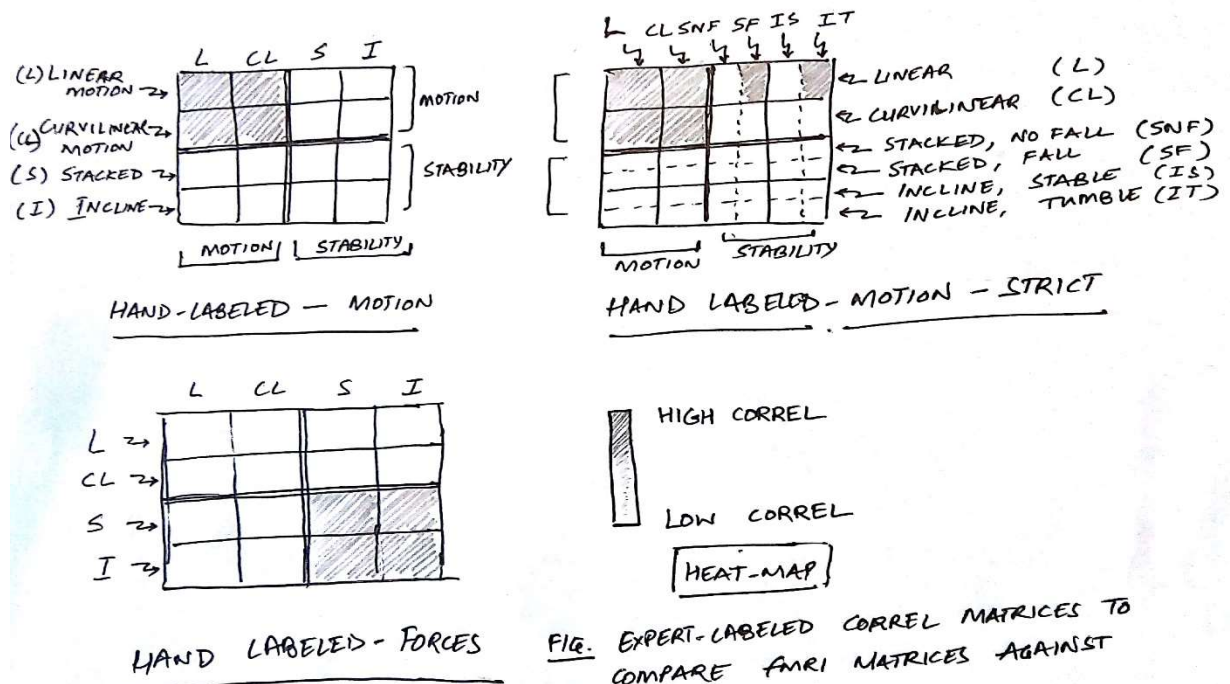 L CL S I
(L) LINEAR
MOTION
(CL) CURVILINEAR
MOTION
(S) STACKED
(I) INCLINE
MOTION
STABILITY
MOTION STABILITY
HAND-LABELED - MOTION
L CL SNF SF IS IT
LINEAR (L)
CURVILINEAR (CL)
STACKED, NO FALL (SNF)
STACKED, FALL (SF)
INCLINE, STABLE (IS)
INCLINE, TUMBLE (IT)
MOTION STABILITY
HAND LABELED - MOTION - STRICT
L CL S I
L
CL
S
I
HAND LABELED - FORCES
HIGH CORREL
LOW CORREL
HEAT-MAP
FIG. EXPERT-LABELED CORREL MATRICES TO
COMPARE fMRI MATRICES AGAINST